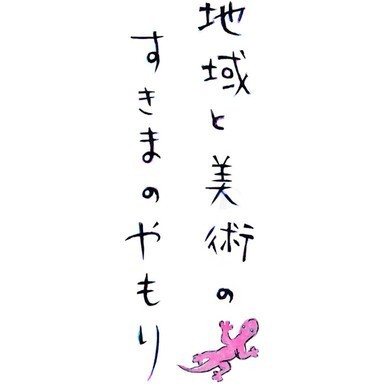 地域と美術の
すきまのやもり